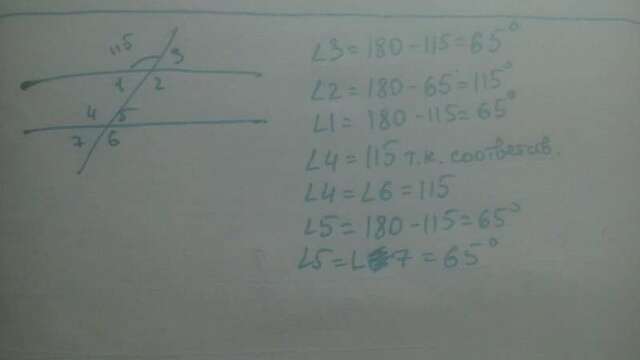 115
3
1
2
4
5
7
6
∠3 = 180 - 115 = 65°
∠2 = 180 - 65 = 115°
∠1 = 180 - 115 = 65°
∠4 = 115 т.к. соответсв.
∠4 = ∠6 = 115
∠5 = 180 - 115 = 65°
∠5 = ∠7 = 65°